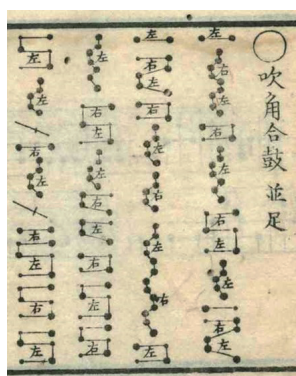 ○吹角合鼓 並足
左右右左右左左右左
左右左右左右左右左
左右左左右左右左右
左左右左右左右左